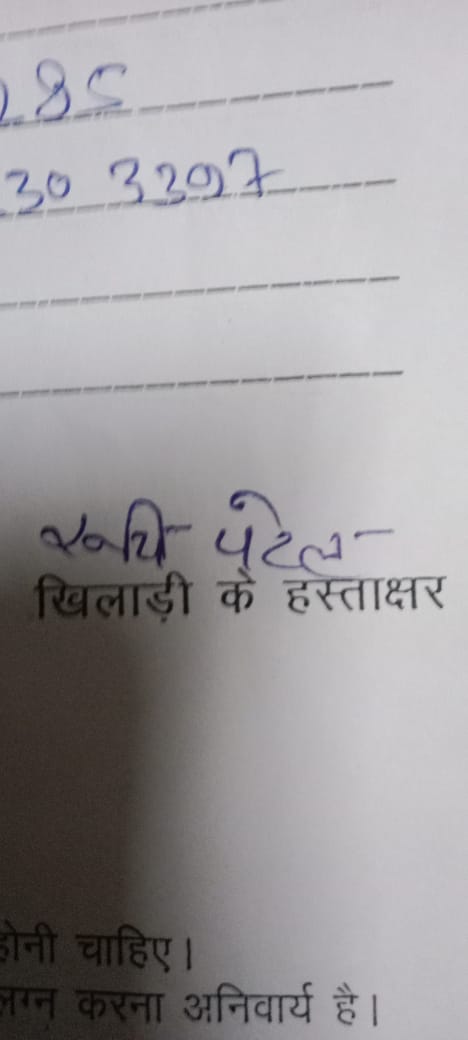 285
30 3397
रूचि पटेल
खिलाड़ी के हस्ताक्षर
होनी चाहिए।
लग्न करना अनिवार्य है।